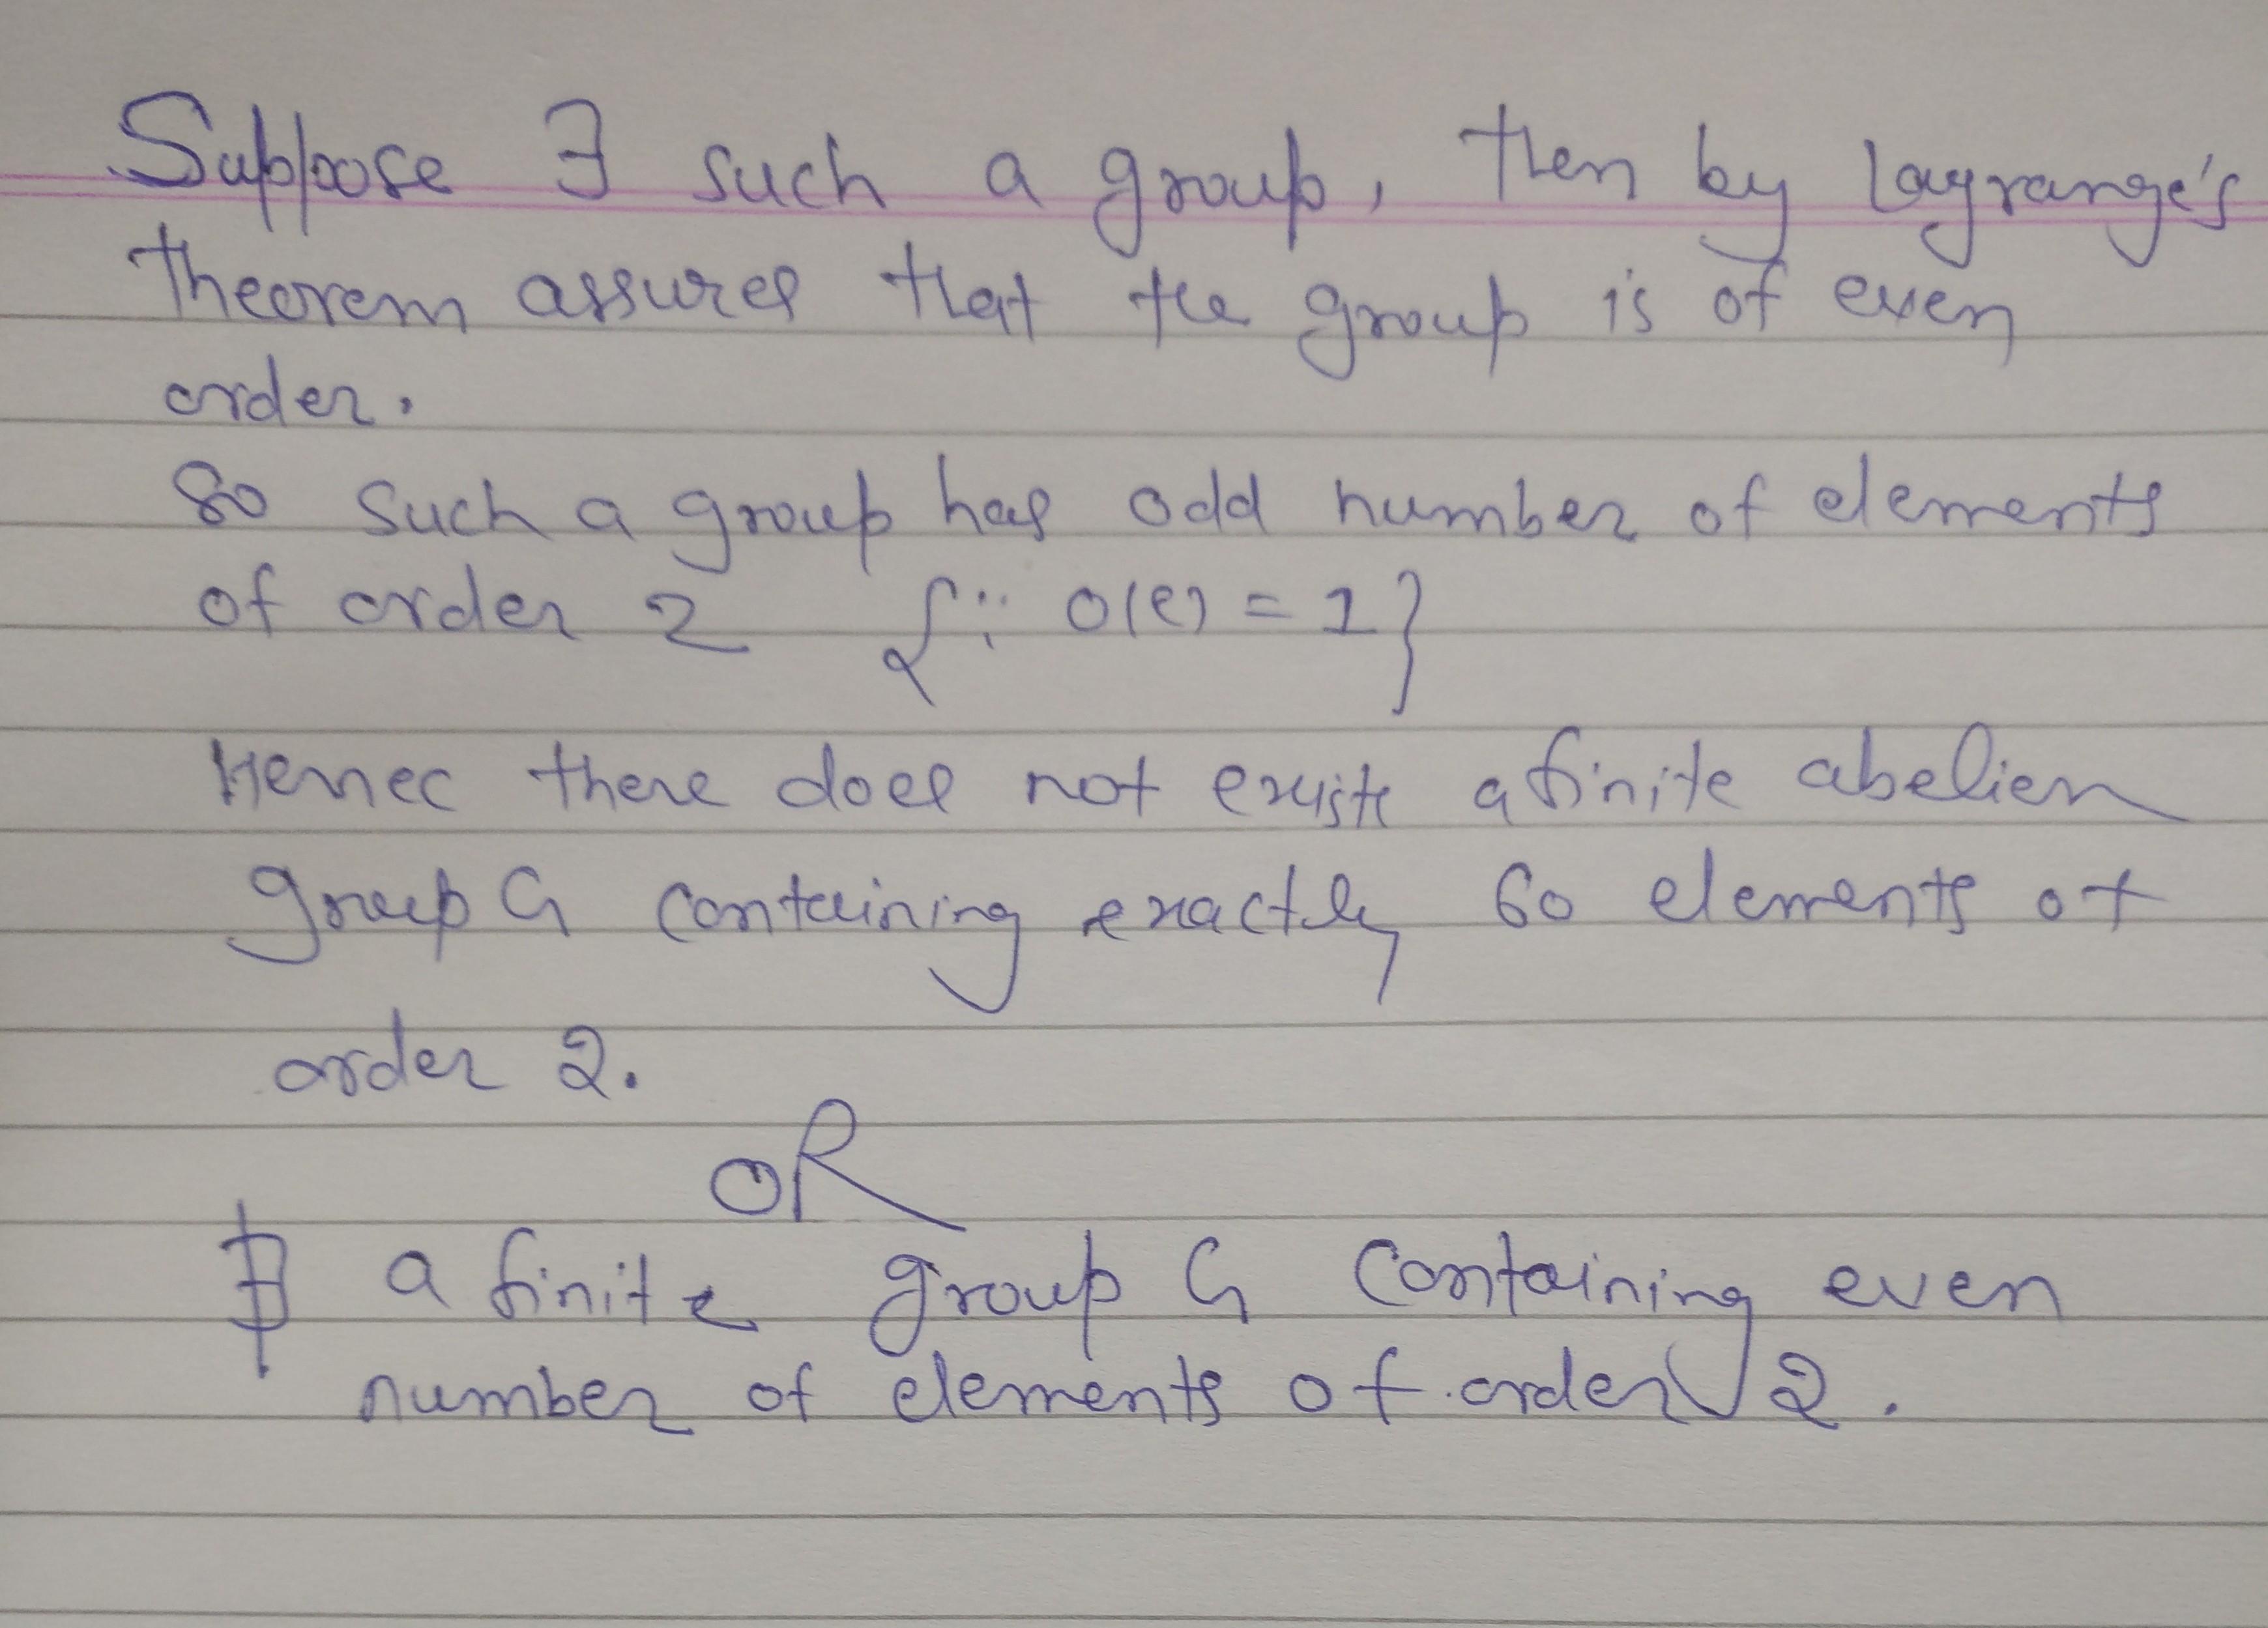 Suppose ∃ such a group, then by Lagrange's
theorem assures that the group is of even
order.
So such a group has odd number of elements
of order 2 {∵ o(e) = 1}
Hence there does not existe a finite abelien
group G containing exactly 60 elements of
order 2.
OR
∄ a finite group G containing even
number of elements of order 2.